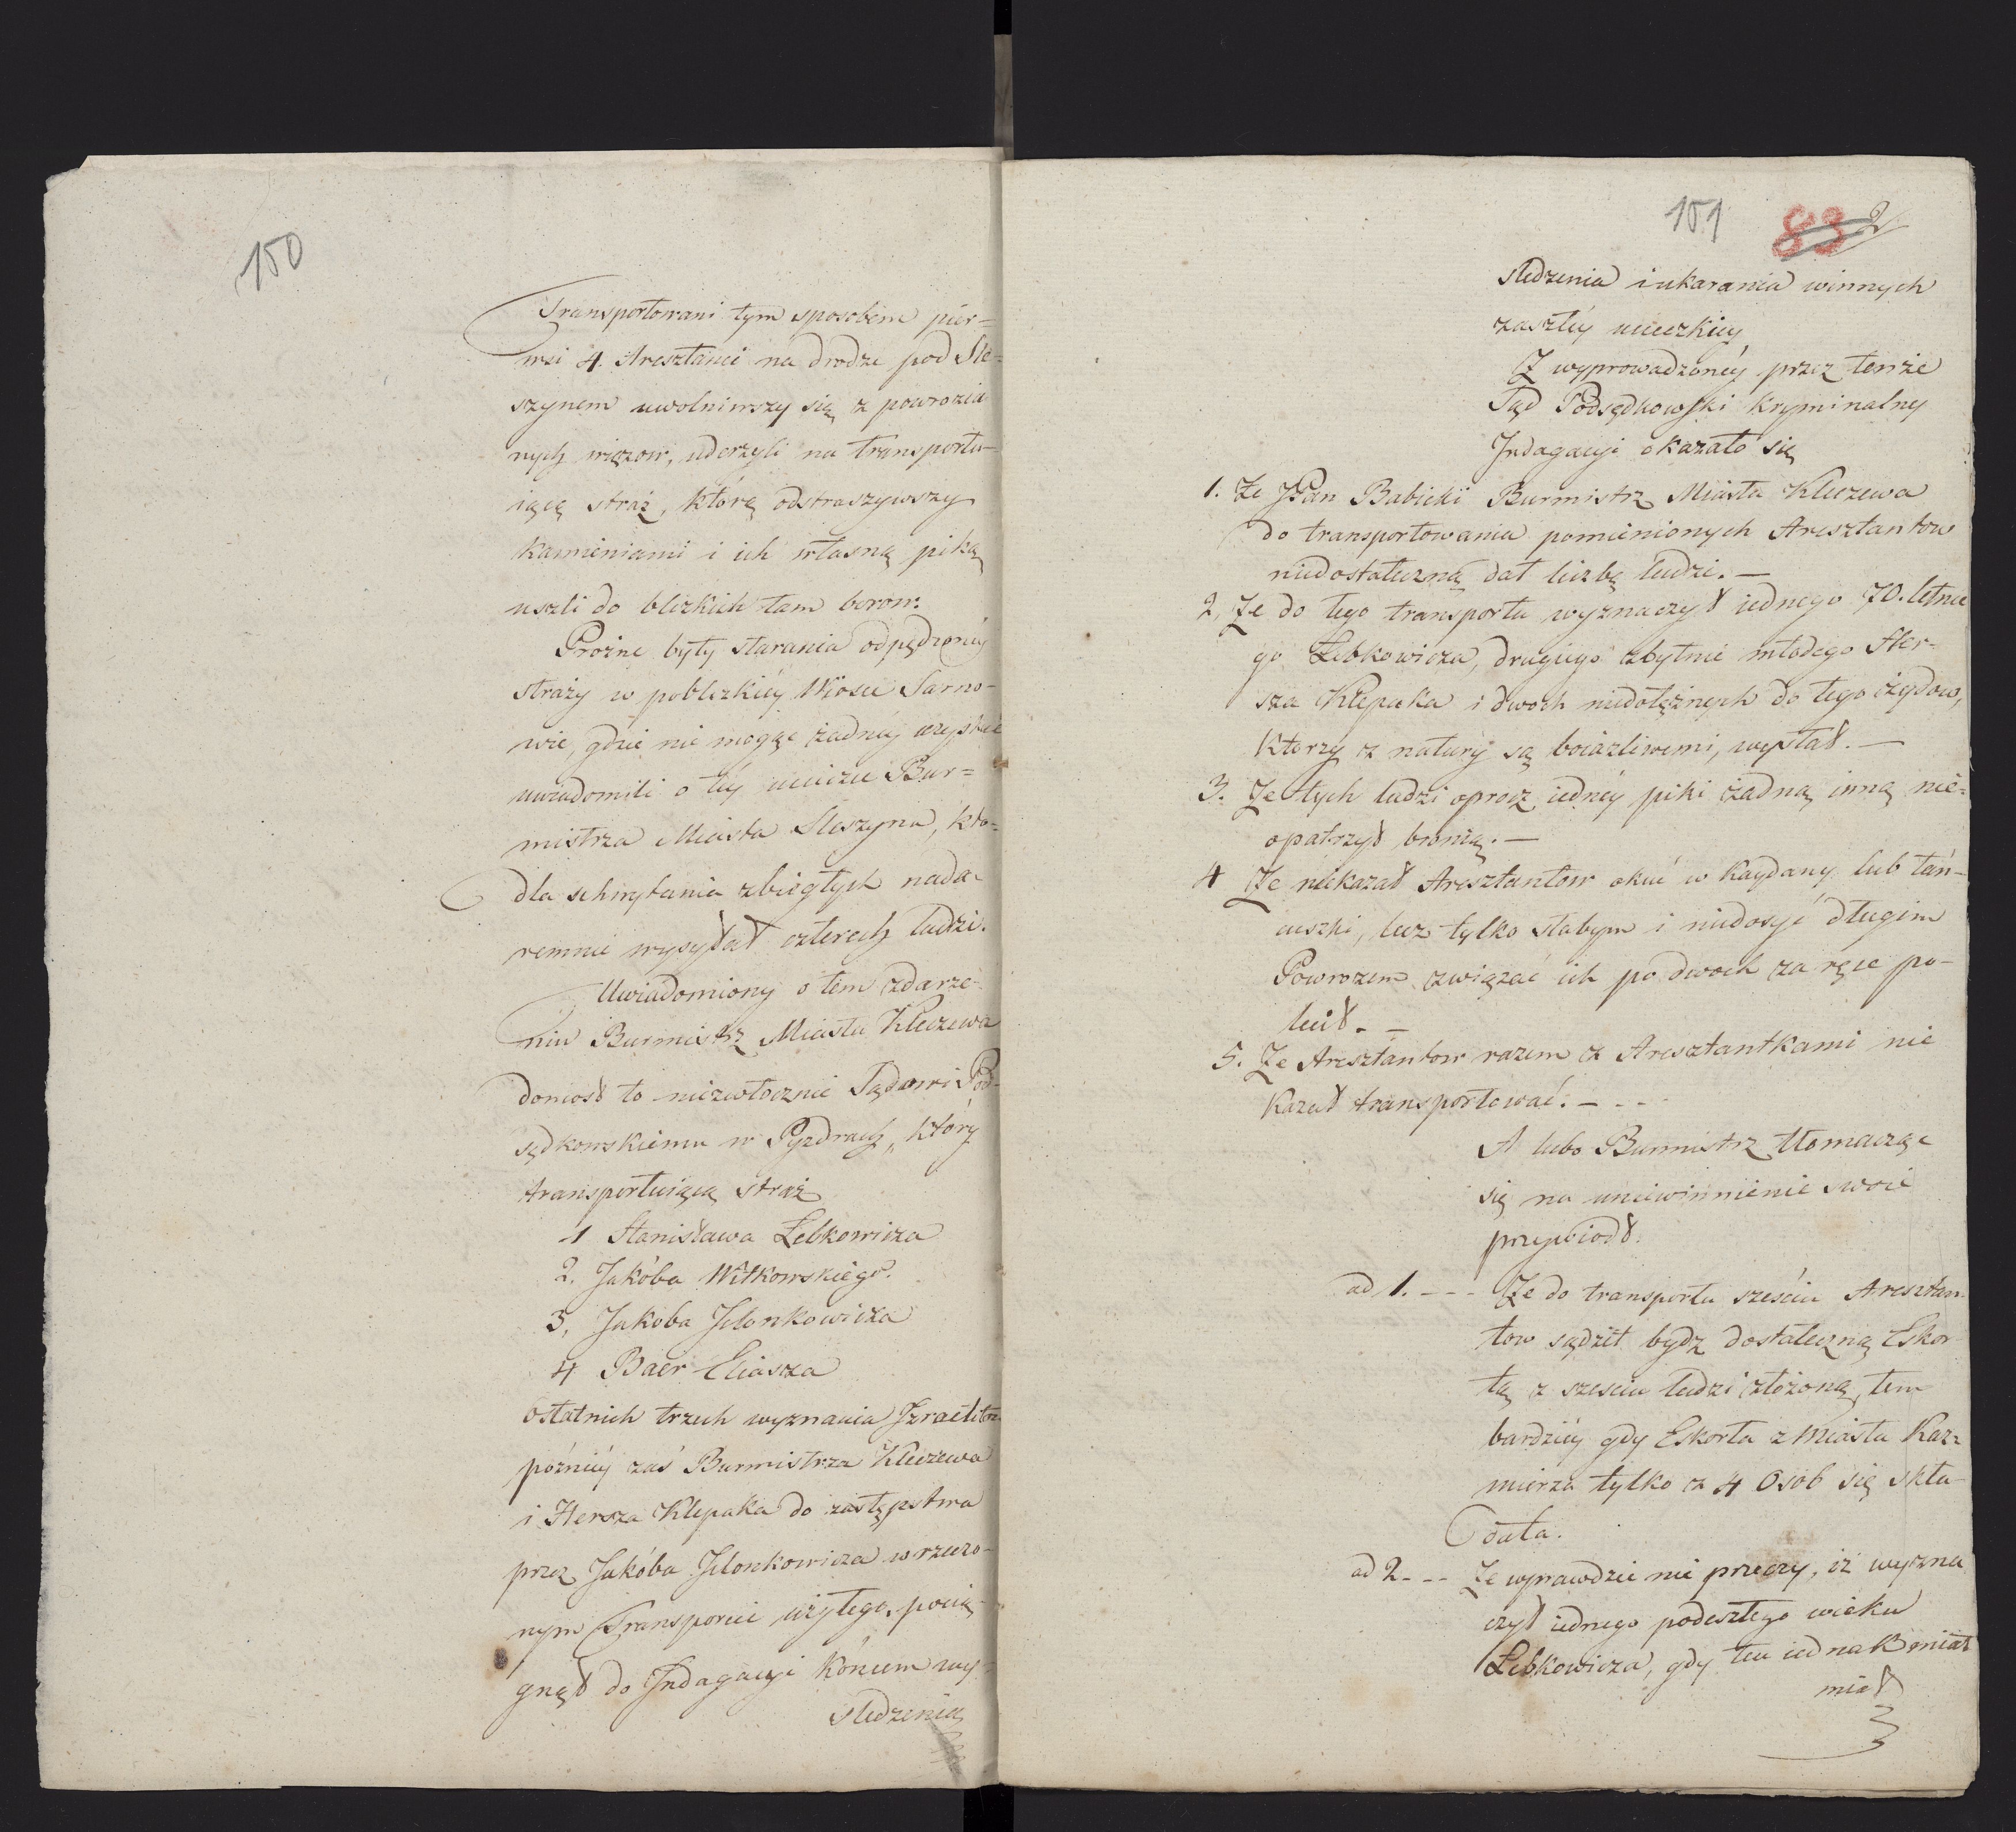 150
Transportowani tym sposobem pier=
wsi 4. Aresztanci na drodze pod Sle=
szynem uwolniwszy się z powrozia
nych więzow, uderzyli na transportu-
iącą straż, którą odstraszywszy
kamieniami i ich własną piką
uszli do blizkich tam borow.
Prożne były starania odpędzonéy
straży w poblizkiéy Wiosce Sarno-
wie, gdzie nie mogąc żadnéy
uwiadomili o téy ucieczce Bur=
mistrza Miasta Sleszyna, kto=
dla schwytania zbiegłych nada-
remnie wysyłał czterech ludzi.
Uwiadomiony o tem zdarze-
niu Burmistrz Miasta Kleczewa
doniosł to niezwłocznie Sądowi Pod-
sędkowskiemu w Pyzdrach, który
transportuiącą straż
1 Stanisława Łebkowicza
2. Jakóba Witkowskiego.
3, Jakoba Jelonkowicza
4 Baer Eliasza
ostatnich trzech wyznania Izraelitow
pózniéy zaś Burmistrza Kleczewa
i Hersza Klepaka do zastępstwa
przez Jakóba Jelonkowicza w rzeczo-
nym Transporcie użytego, pocią-
gnął do Indagacyi końcem wy-
śledzenia
151 83 2
śledzenia i ukarania winnych
zaszłéy ucieczkiéy
Z wyprowadzonéy przez tenże
Sąd Podsędkowski Kryminalny
Indagacyi okazało się
1. Ze JPan Babicki Burmistrz Miasta Kleczewa
do transportowania pomienionych Aresztantow
niedostateczną dał liczbę ludzi. —
2, Ze do tego transportu wyznaczył iednego 70. letnie
go Łebkowicza, drugiego zbytnie młodego Her-
sza Klepaka i dwoch niedołężnych do tego żydow,
ktorzy z natury są boiaźliwemi, wysłał. —
3. Ze tych ludzi oprocz iednéy piki żadną inną nie=
opatrzył bronią. —
4 Ze niekazał Aresztantow okuć w kaydany lub łań-
cuszki, lecz tylko słabym i niedosyć długim
Powrozem związać ich po dwoch za ręce po-
lecił. —
5. Ze Aresztantow razem z Aresztantkami nie
kazał transportować. — - -
A lubo Burmistrz tłomacząc
się na uniewinnienie swoie
przywiodł.
ad 1. - - - Ze do transportu sześciu Aresztan-
tow sądził bydz dostateczną Eskor
tą z szesciu ludzi złożoną, tem
bardziéy gdy Eskorta z Miasta Kaz=
mierza tylko z 4 Osób się skła-
dała.
ad 2. - - Ze wprawdzie nie przeczy, iż wyzna
czył iednego podeszłego wieku
Łebkowicza, gdy ten iednak miał
miał